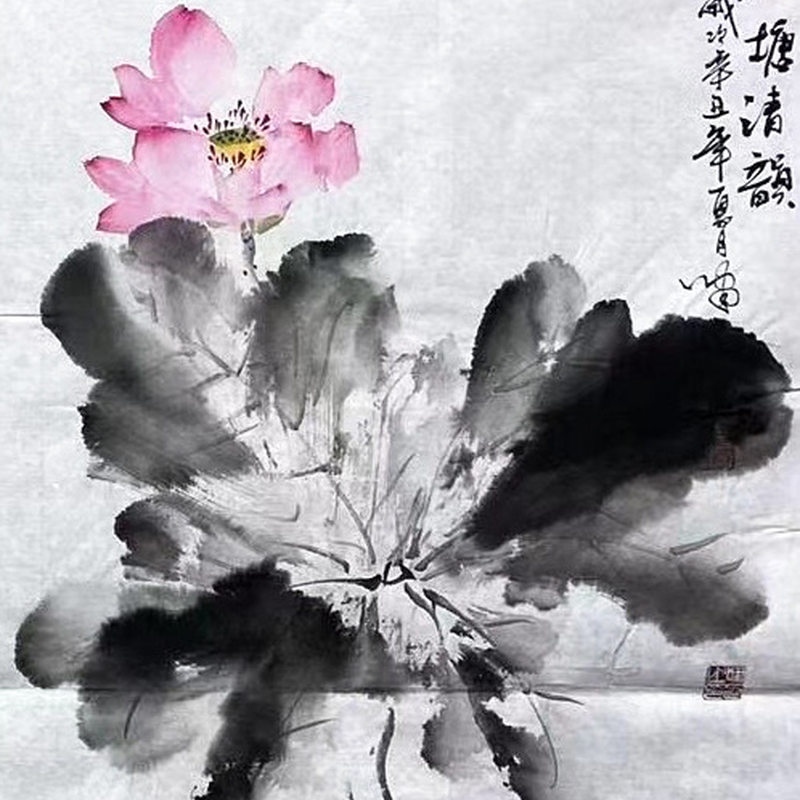 塘清韻
歲次辛丑年夏月